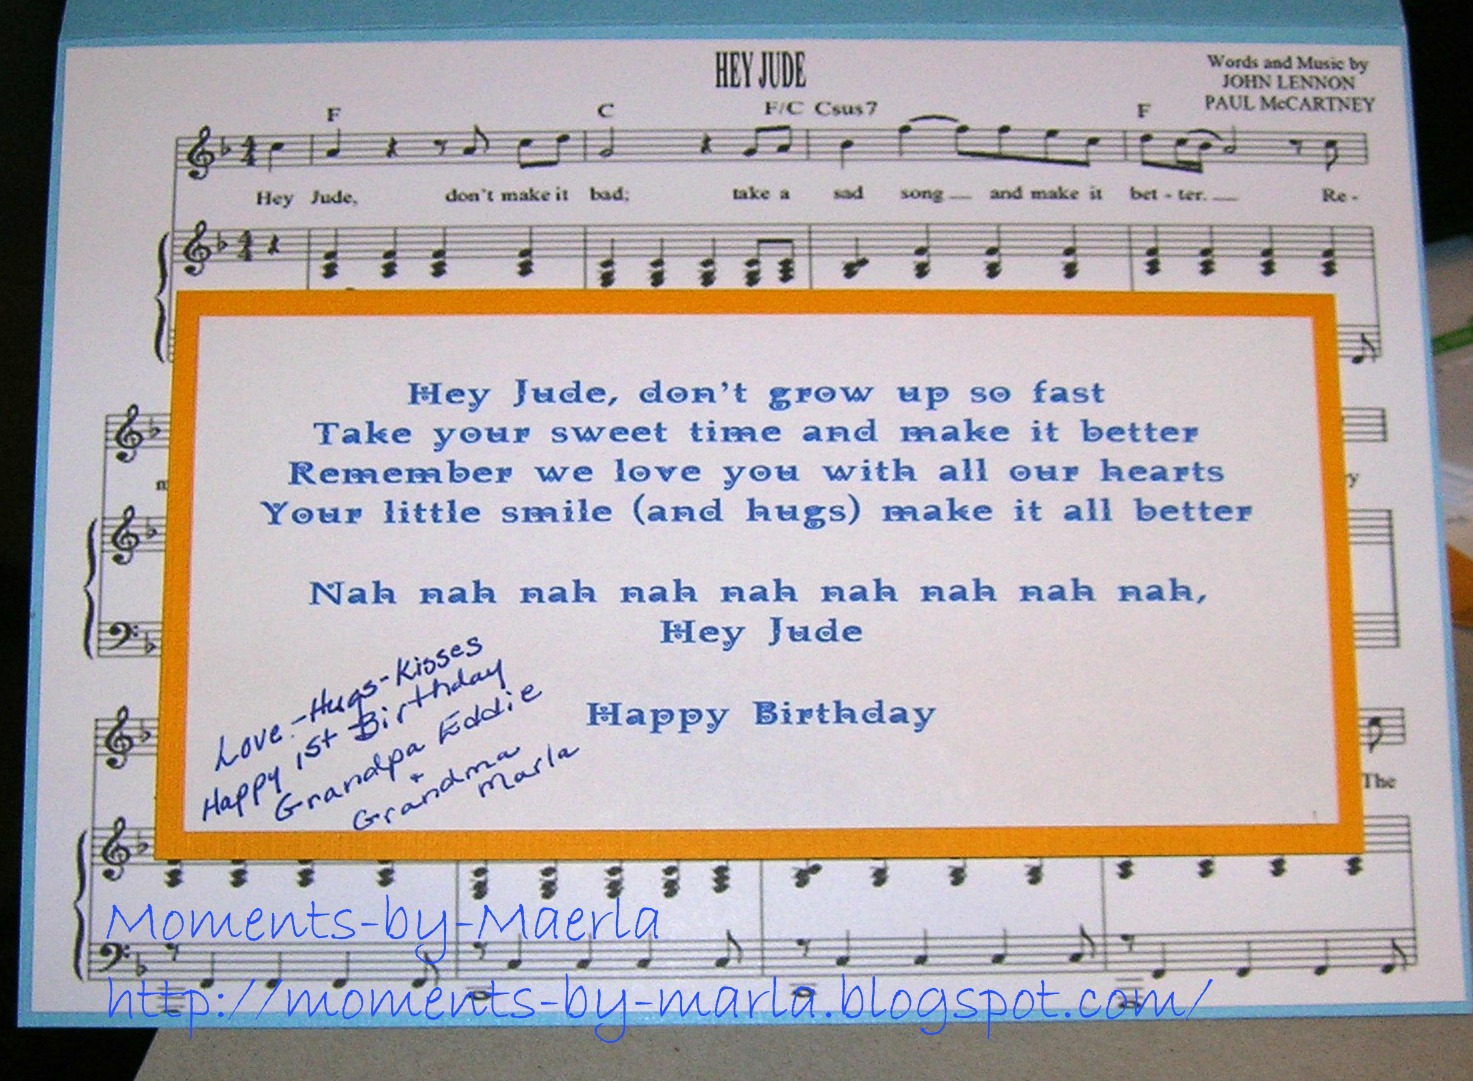 HEY JUDE
Words and Music by
JOHN LENNON
PAUL McCARTNEY
F C F/C Csus7 F
Hey Jude, don't make it bad; take a sad song and make it bet - ter. Re -
Hey Jude, don't grow up so fast
Take your sweet time and make it better
Remember we love you with all our hearts
Your little smile (and hugs) make it all better
Nah nah nah nah nah nah nah nah nah,
Hey Jude
Happy Birthday
Love - Hugs - Kisses
Happy 1st Birthday
Grandpa Eddie
+
Grandma
Marla
The
Moments-by-Maerla
http://moments-by-marla.blogspot.com/